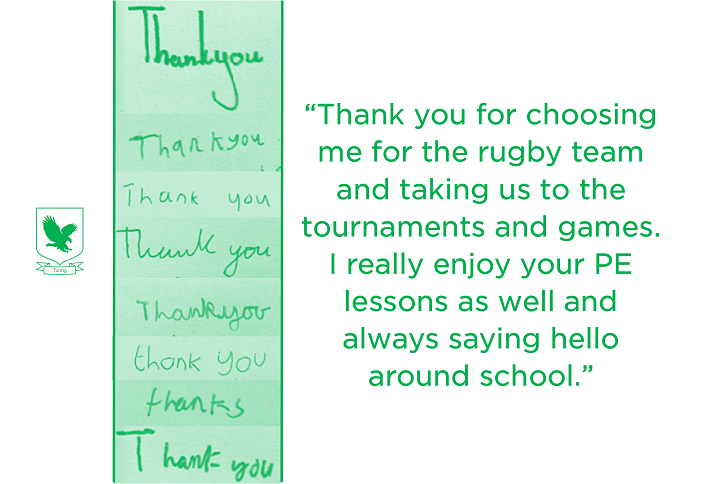 Thankyou
Thankyou
Thank you
Thank you
Thankyou
thank you
thanks
Thank you
Turing
“Thank you for choosing
me for the rugby team
and taking us to the
tournaments and games.
I really enjoy your PE
lessons as well and
always saying hello
around school.”